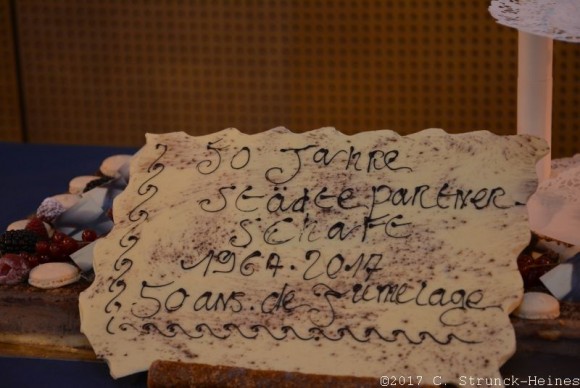 50 Jahre
Städtepartner-
schaft
1967-2017
50 ans de Jumelage
©2017 C. Strunck-Heines